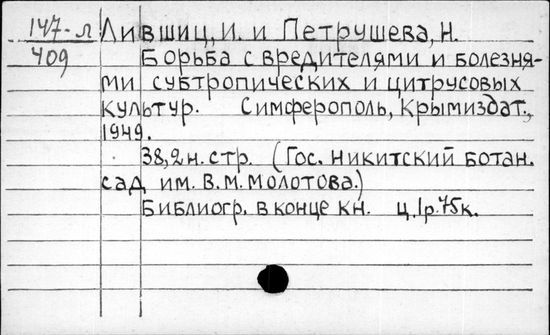 147-л Лившиц, И. и Петрушева, Н.
409 Борьба с вредителями и болезня-
ми субтропических и цитрусовых
культур. Симферополь, Крымиздат.,
1949.
38,2н. стр. (Гос. Никитский ботан.
сад им. В.М. Молотова.)
Библиогр. в конце кн. ц. 1р.75к.